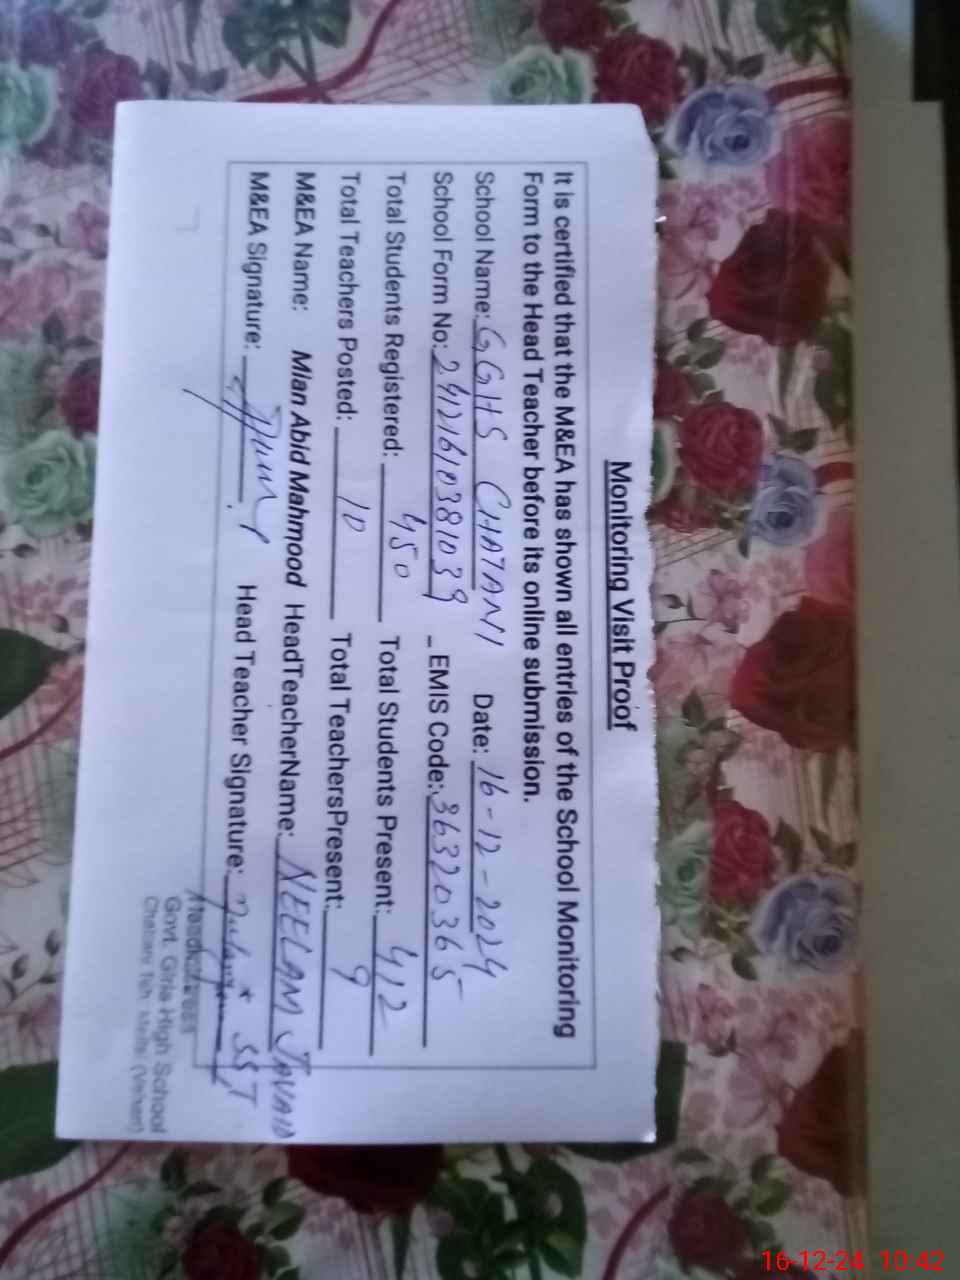 Monitoring Visit Proof
It is certified that the M&EA has shown all entries of the School Monitoring
Form to the Head Teacher before its online submission.
School Name: GGHS CHATANI Date: 16-12-2024
School Form No: 24121610381039 _ EMIS Code: 36320365
Total Students Registered: 450 Total Students Present: 412
Total Teachers Posted: 10 Total TeachersPresent: 9
M&EA Name: Mian Abid Mahmood HeadTeacherName: NEELAM JAVAID
M&EA Signature: Head Teacher Signature: SST
Headmistress
Govt. Girls High School
Chattani Teh Mailsi (Vehari)
16-12-24 10:42